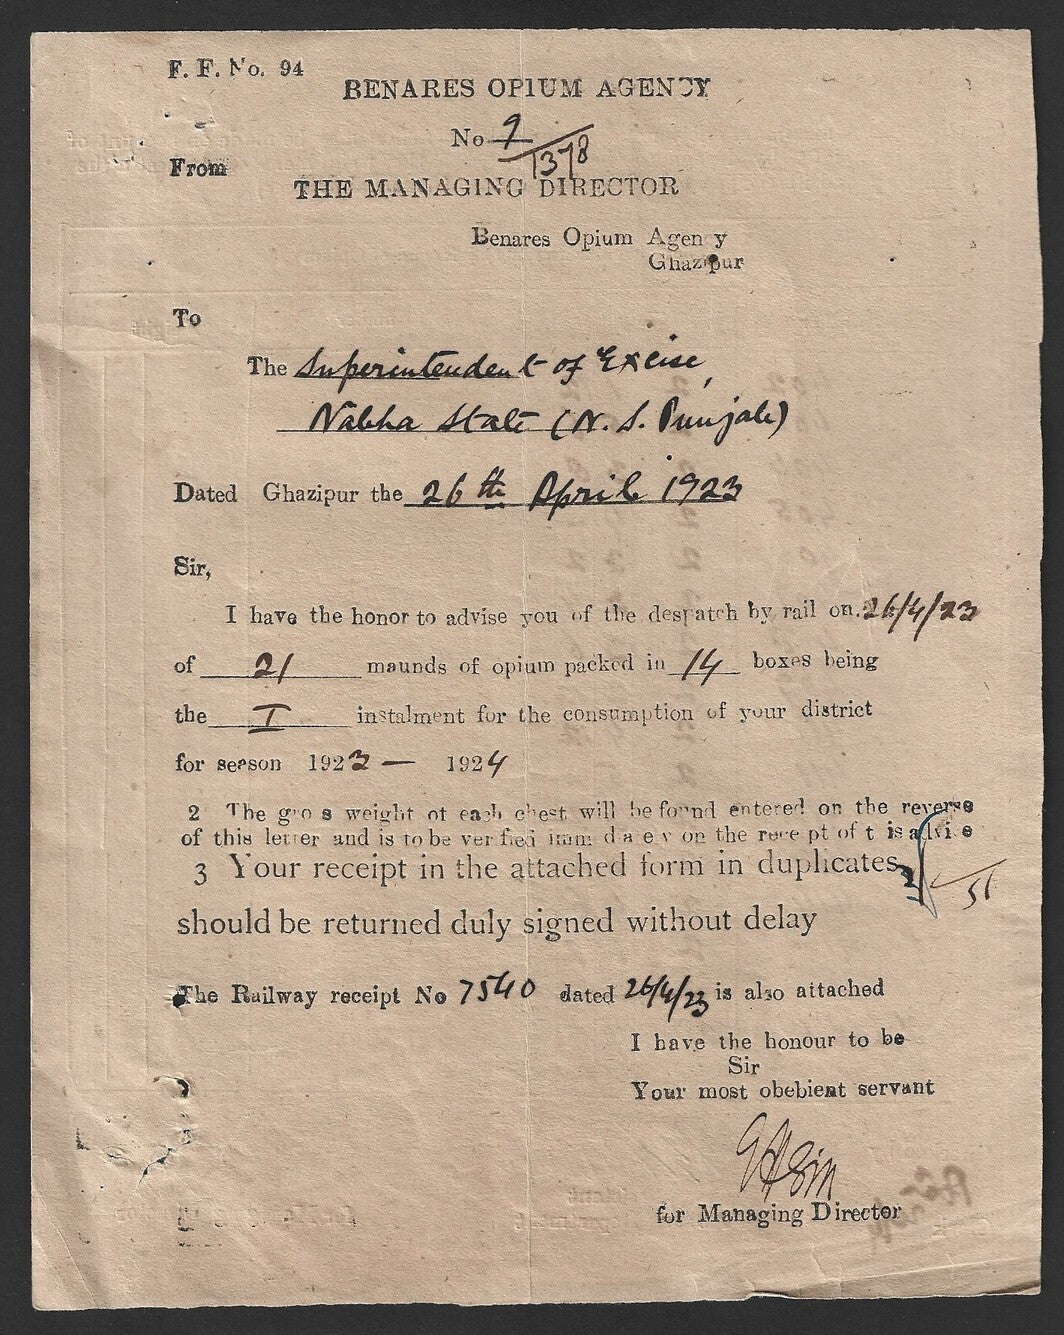 F. F. No. 94
BENARES OPIUM AGENCY
No 9/1378
From
THE MANAGING DIRECTOR
Benares Opium Agency
Ghazipur
To
The Superintendent of Excise,
Nabha State (N. S. Punjab)
Dated Ghazipur the 26th April 1923
Sir,
I have the honor to advise you of the despatch by rail on. 26/4/23
of 21 maunds of opium packed in 14 boxes being
the I instalment for the consumption of your district
for season 1923 — 1924
2 The gross weight of each chest will be found entered on the reverse
of this letter and is to be verified on the receipt of this advice
3 Your receipt in the attached form in duplicates
should be returned duly signed without delay
The Railway receipt No 7540 dated 26/4/23 is also attached
I have the honour to be
Sir
Your most obebient servant
for Managing Director